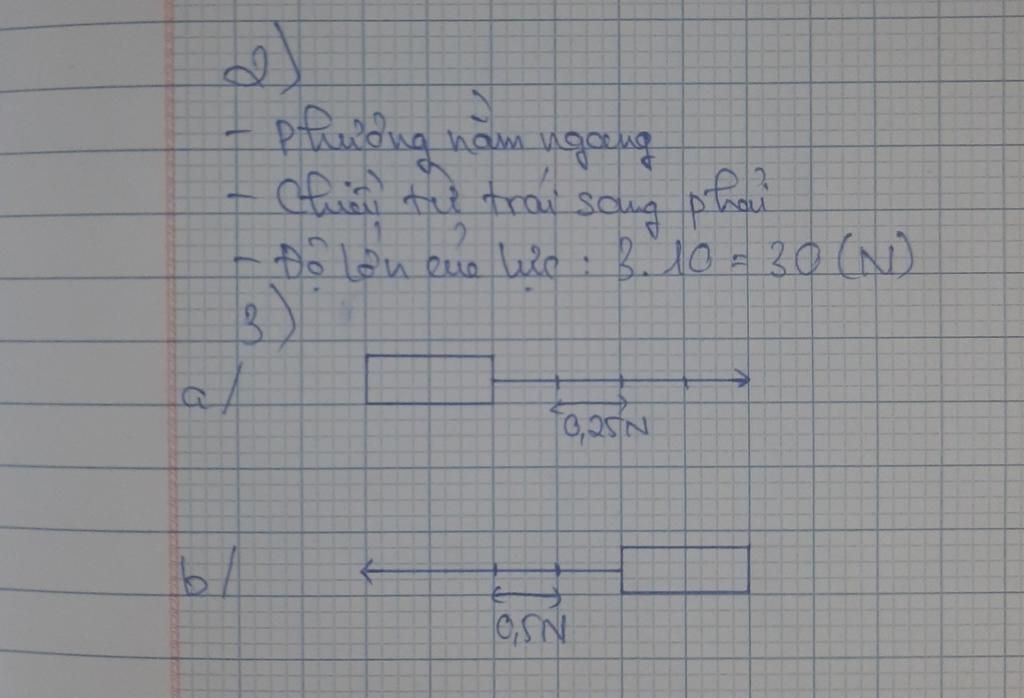 2)
- Phương nằm ngang
- Chiều từ trái sang phải
- Độ lớn của lực : 3.10 = 30 (N)
3)
a/
0,25N
b/
0,5N